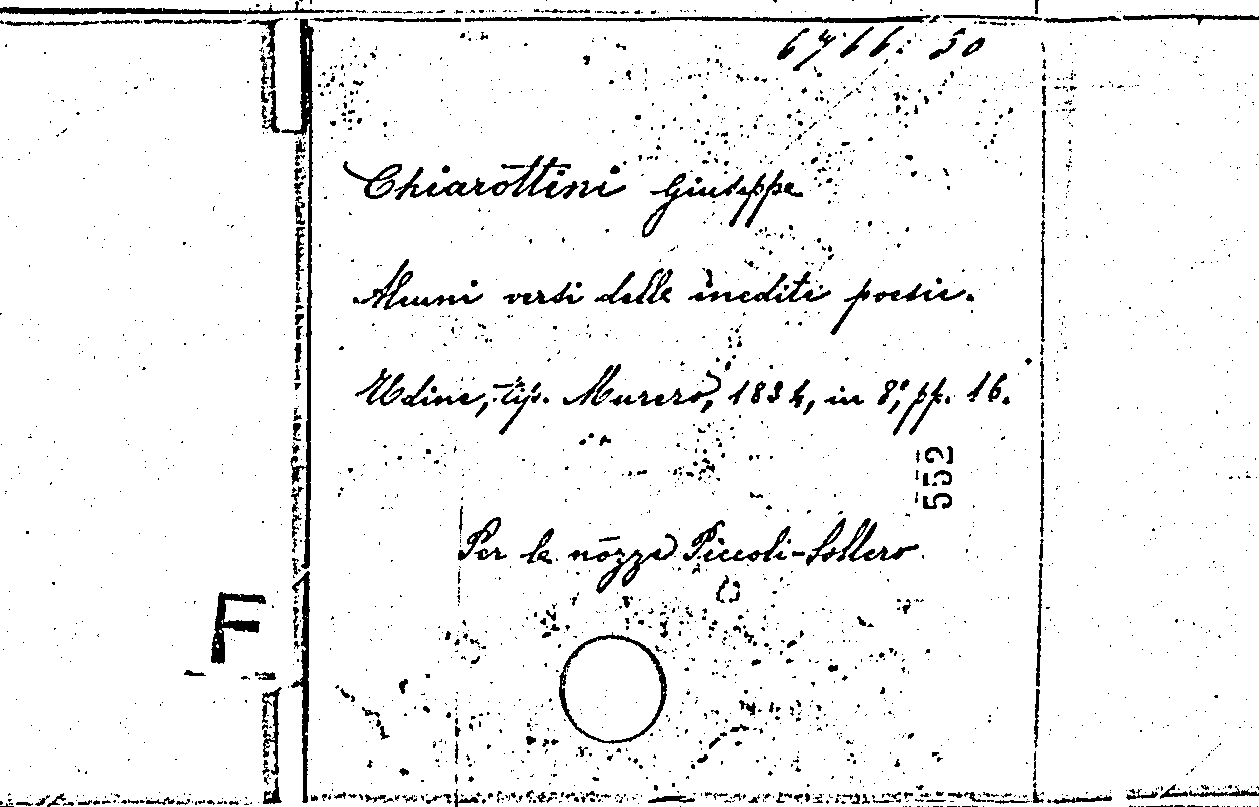 6766. 50
Chiarottini Giuseppe
Alcuni versi delle inedite poesie.
Udine, tip. Murero, 1834, in 8°, pp. 16.
552
Per le nozze Piccoli-Sollero
F